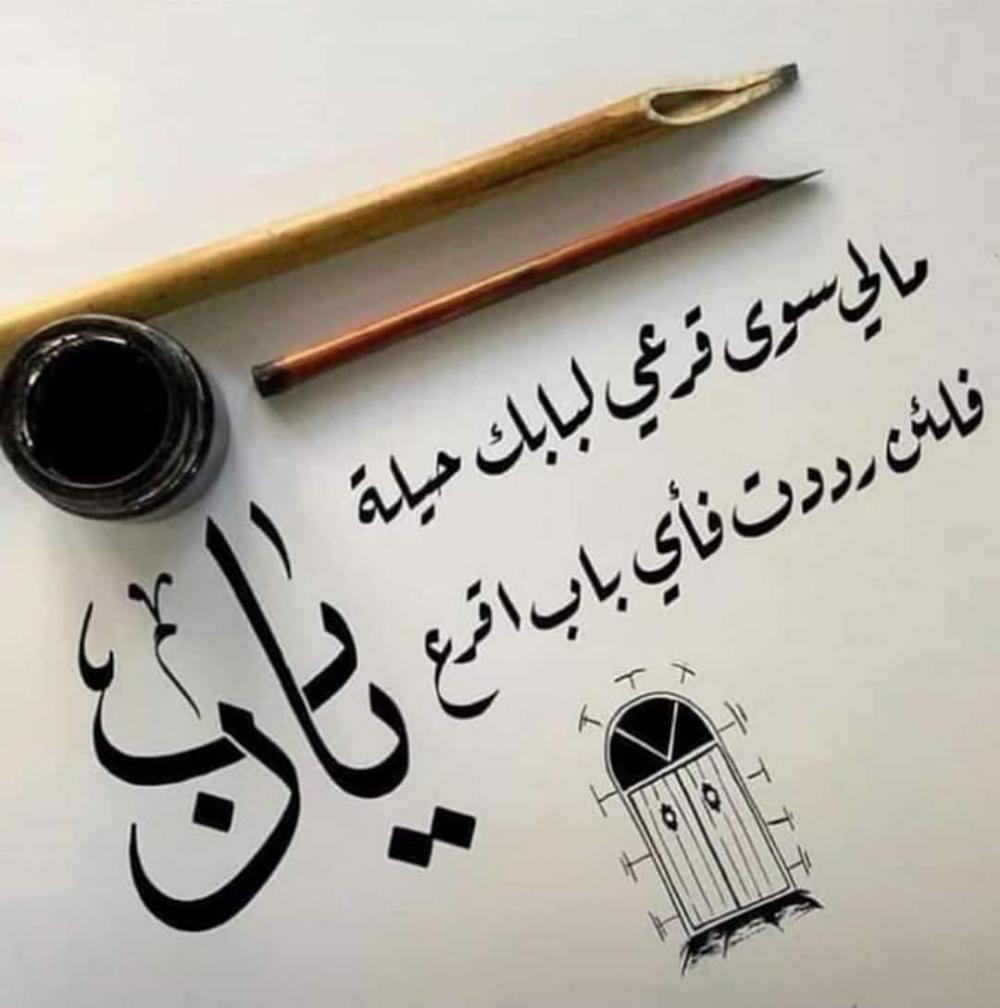 مالي سوى قرعي لبابك حيلة
فلئن رددت فأي باب اقرع
يارب